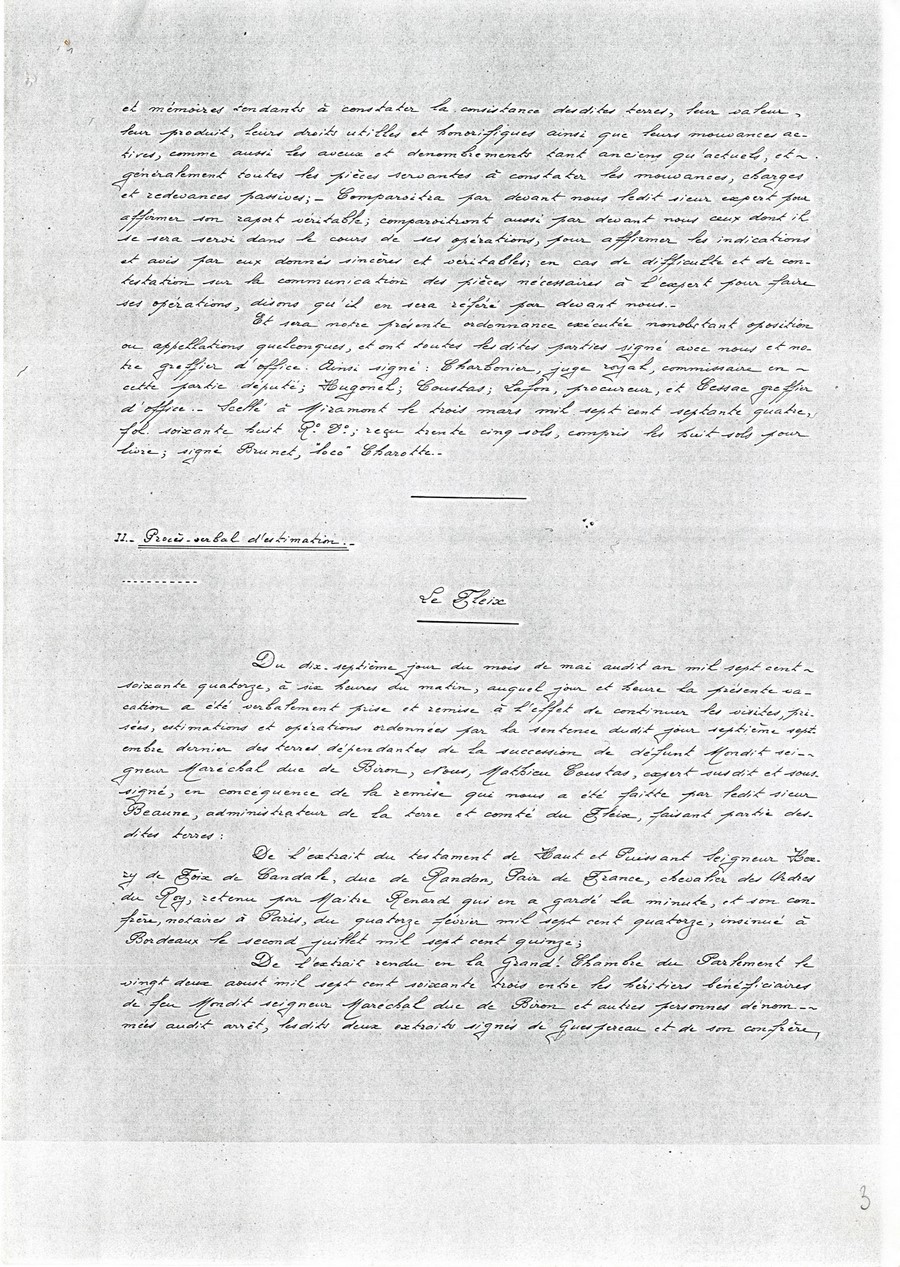 et mémoires tendants à constater la consistance desdites terres, leur valeur,
leur produit, leurs droits utilles et honorifiques ainsi que leurs mouvances ac-
tives, comme aussi les aveux et denombrements tant anciens qu'actuels, et -
généralement toutes les pièces servantes à constater les mouvances, charges
et redevances passives; - Comparoitra par devant nous ledit sieur expert pour
affirmer son raport véritable; comparoitront aussi par devant nous ceux dont il
se sera servi dans le cours de ses opérations, pour affirmer les indications
et avis par eux donnés sincères et véritables; en cas de difficulte et de con-
testation sur la communication des pièces nécessaires à l'expert pour faire
ses opérations, disons qu'il en sera référé par devant nous.-
Et sera notre présente ordonnance exécutée nonobstant oposition
ou appellations quelconques, et ont toutes lesdites parties signé avec nous et no-
tre greffier d'office. Ainsi signé : Charbonier, juge royal, commissaire en -
cette partie député; Hugonel; Coustas; Lafon, procureur, et Cessac greffier
d'office.- Scellé à Miramont le trois mars mil sept cent septante quatre,
fol. soixante huit R° D°; reçu trente cinq sols, compris les huit sols pour
livre; signé Brunet, "loco" Charotte.-
II.- Procès-verbal d'estimation.-
-----------
Le Fleix
Du dix-septième jour du mois de mai audit an mil sept cent -
soixante quatorze, à six heures du matin, auquel jour et heure la présente va-
cation a été verbalement prise et remise à l'effet de continuer les visites, pri-
sées, estimations et opérations ordonnées par la sentence dudit jour septième sept-
embre dernier des terres dépendantes de la succession de défunt Mondit sei--
gneur Maréchal duc de Biron, Nous, Mathieu Coustas, expert susdit et sous-
signé, en conséquence de la remise qui nous a été faitte par ledit sieur
Beaune, administrateur de la terre et comté du Fleix, faisant partie des-
dites terres :
De l'extrait du testament de Haut et Puissant Seigneur Hen-
ry de Foix de Candale, duc de Randon, Pair de France, chevalier des Ordres
du Roy, retenu par Maitre Renard qui en a gardé la minute, et son con-
frère, notaires à Paris, du quatorze février mil sept cent quatorze, insinué à
Bordeaux le second juillet mil sept cent quinze;
De l'extrait rendu en la Grand! Chambre du Parlement le
vingt deux aoust mil sept cent soixante trois entre les héritiers bénéficiaires
de feu Mondit seigneur Maréchal duc de Biron et autres personnes dénom--
mées audit arrêt, lesdits deux extraits signés de Guespereau et de son confrère,
3